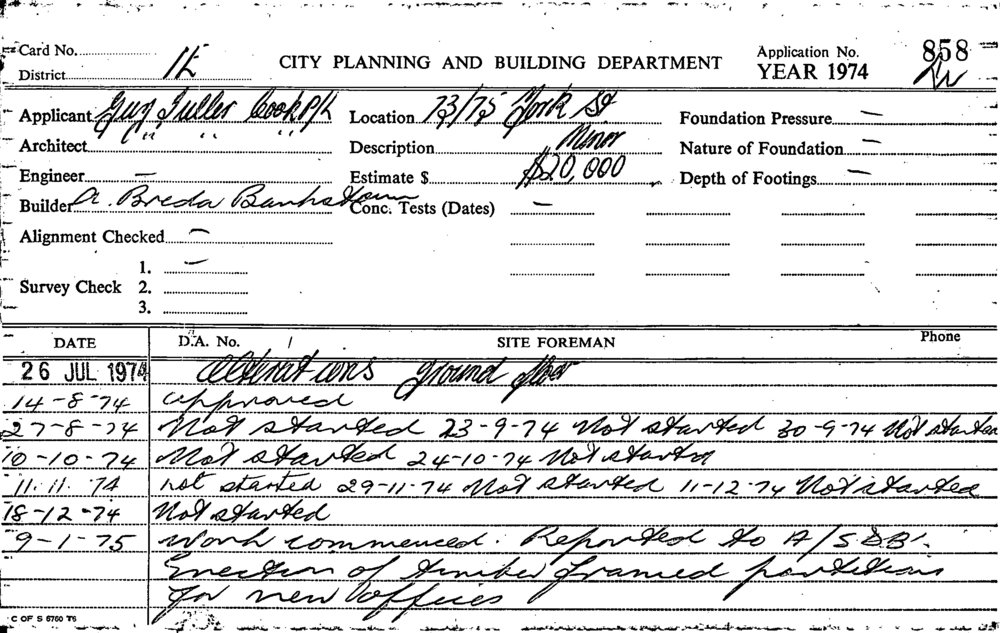 Card No.
District 1E CITY PLANNING AND BUILDING DEPARTMENT Application No. 858
YEAR 1974
Applicant Guy Fuller Cook P/L Location 73/75 York St Foundation Pressure —
Architect " " " Description Minor Nature of Foundation —
Engineer — Estimate $ $20,000 Depth of Footings —
Builder A. Breda Bankstown Conc. Tests (Dates) —
Alignment Checked —
1. —
Survey Check 2.
3.
DATE D.A. No. / SITE FOREMAN Phone
26 JUL 1974 alterations ground floor
14-8-74 approved
27-8-74 Not started 23-9-74 Not started 30-9-74 Not started
10-10-74 Not started 24-10-74 Not started
11.11.74 not started 29-11-74 Not started 11-12-74 Not started
18-12-74 Not started
9-1-75 Work commenced. Reported to A/S&B.
Erection of timber framed partitions
for new offices
C OF S 6760 T6